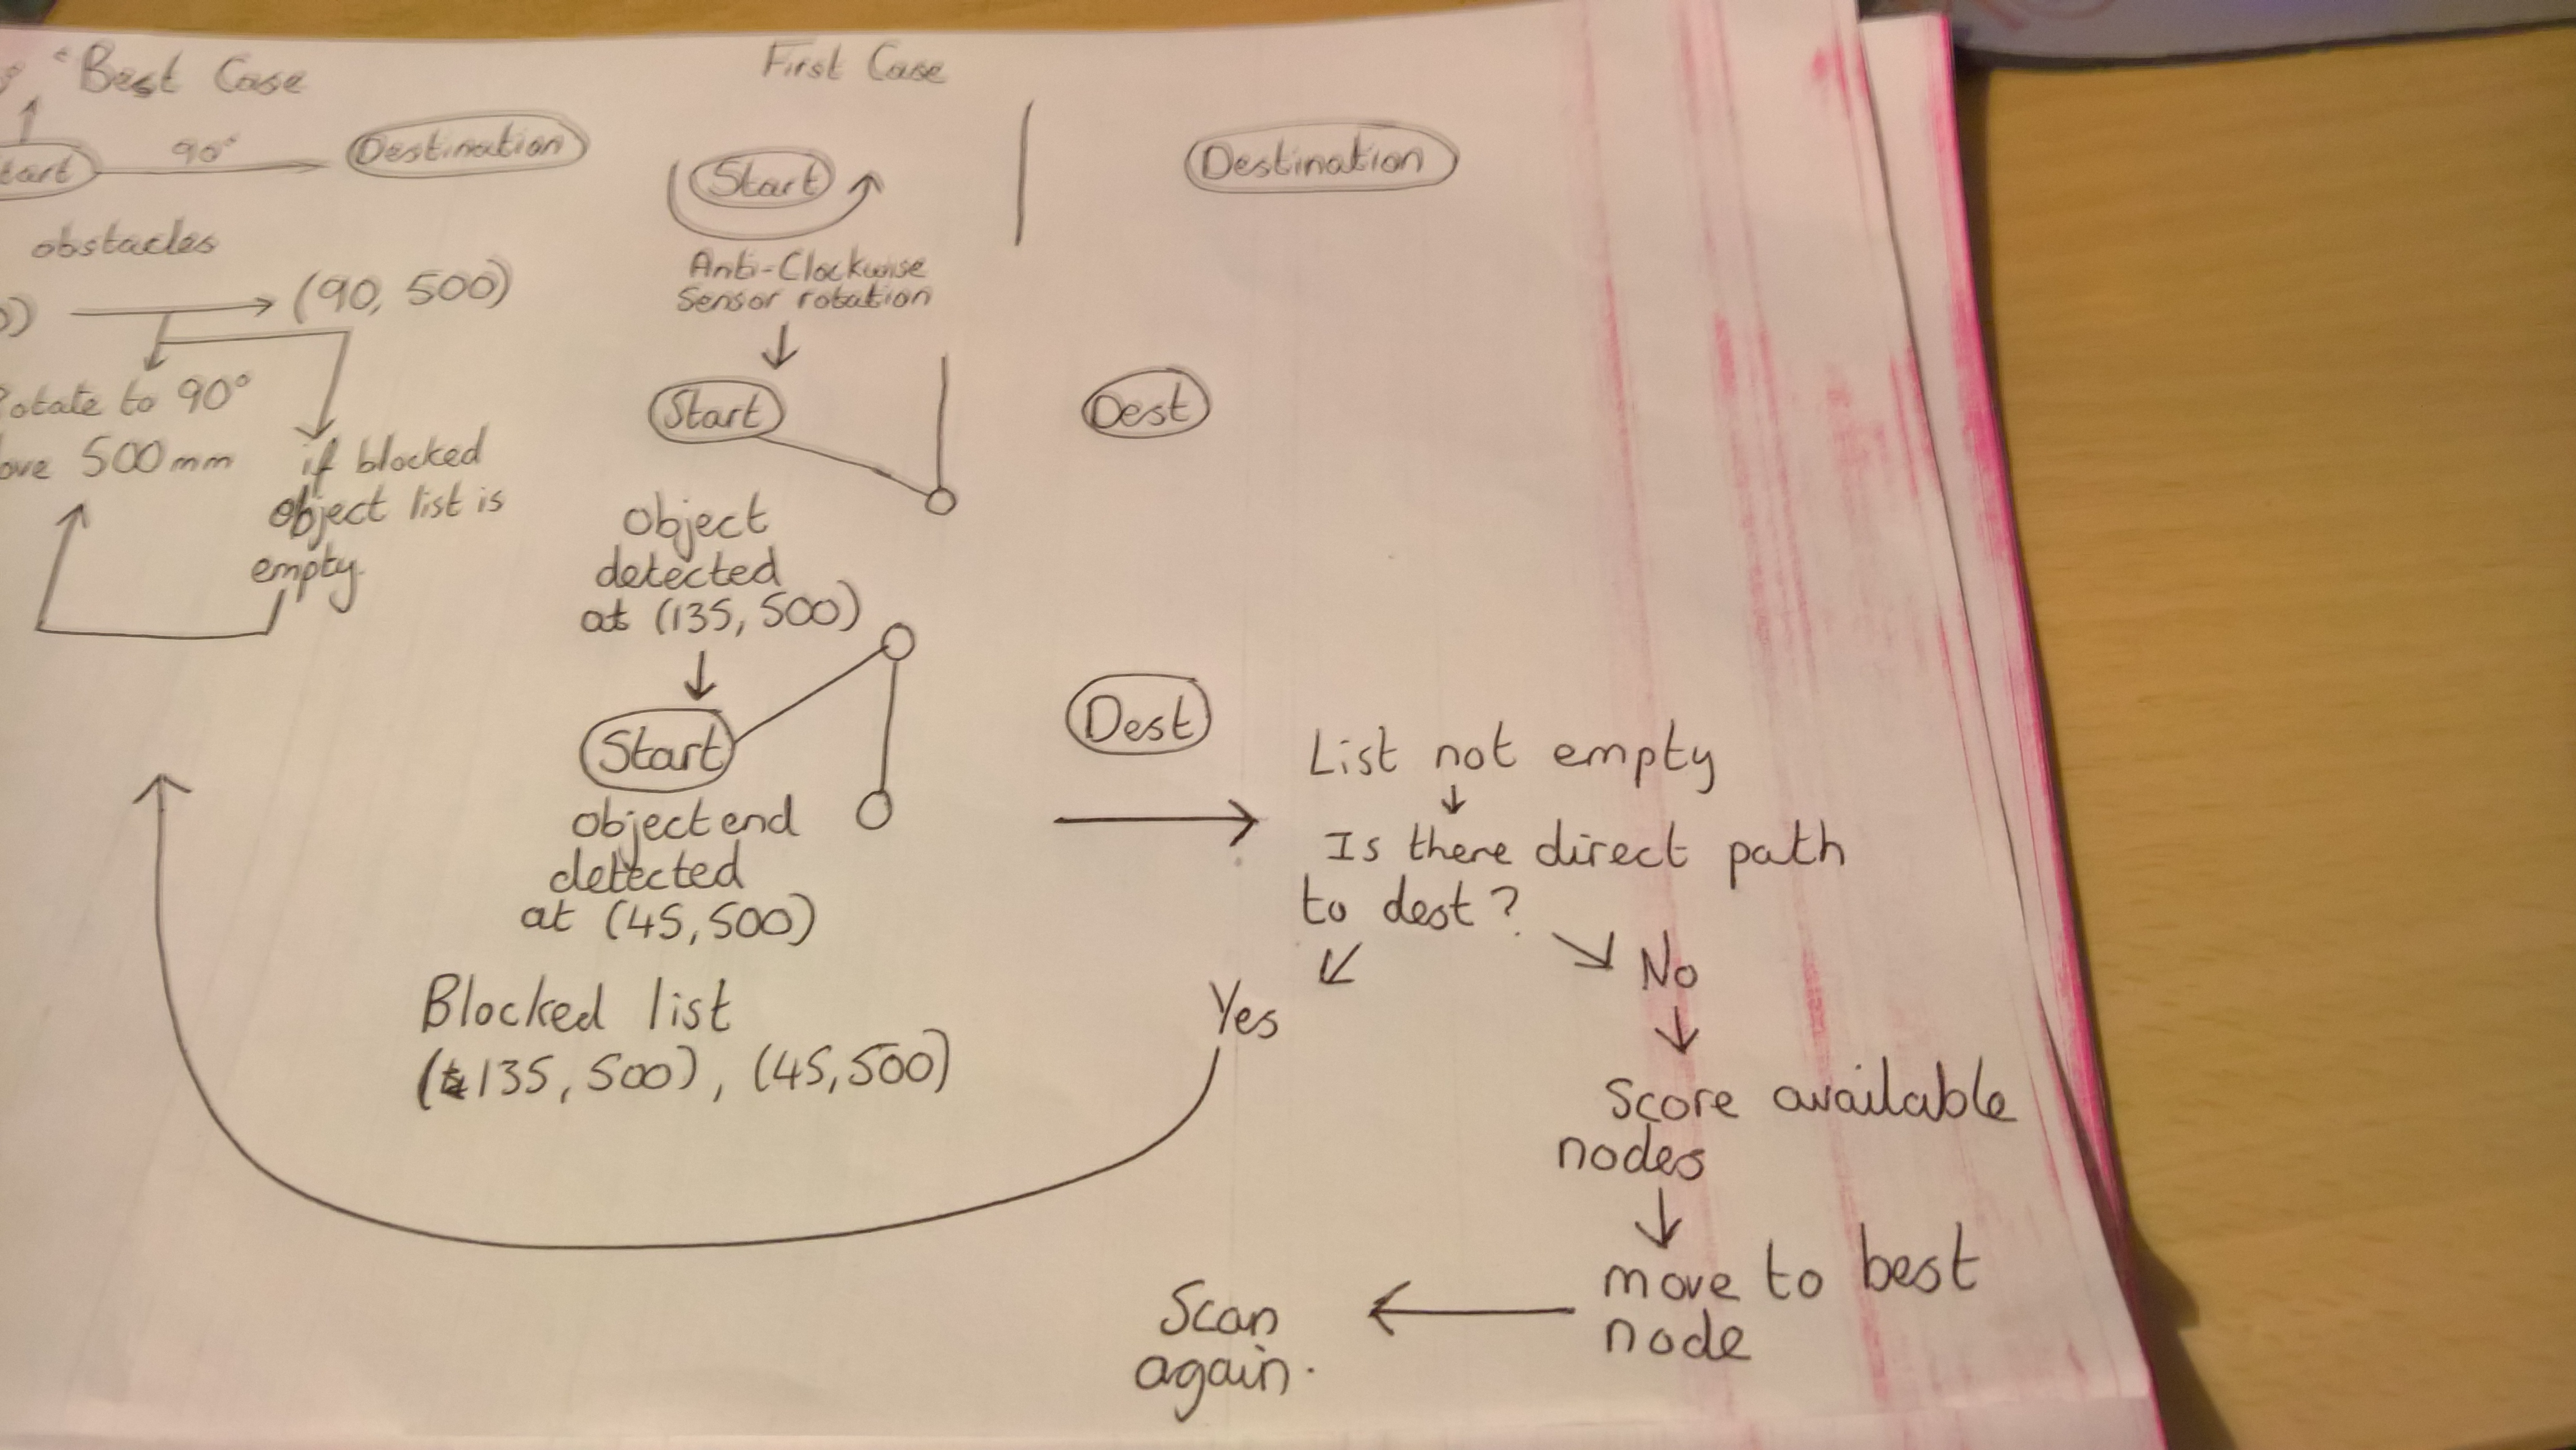 Best Case
90°
Destination
obstacles
(90, 500)
to 90°
500mm
if blocked
object list is
empty.
First Case
Start
Destination
Anti-Clockwise
Sensor rotation
Start
Dest
Object
detected
at (135, 500)
Start
Dest
object end
detected
at (45, 500)
Blocked list
(135, 500), (45, 500)
List not empty
Is there direct path
to dest?
Yes
No
Score available
nodes
move to best
node
Scan
again.